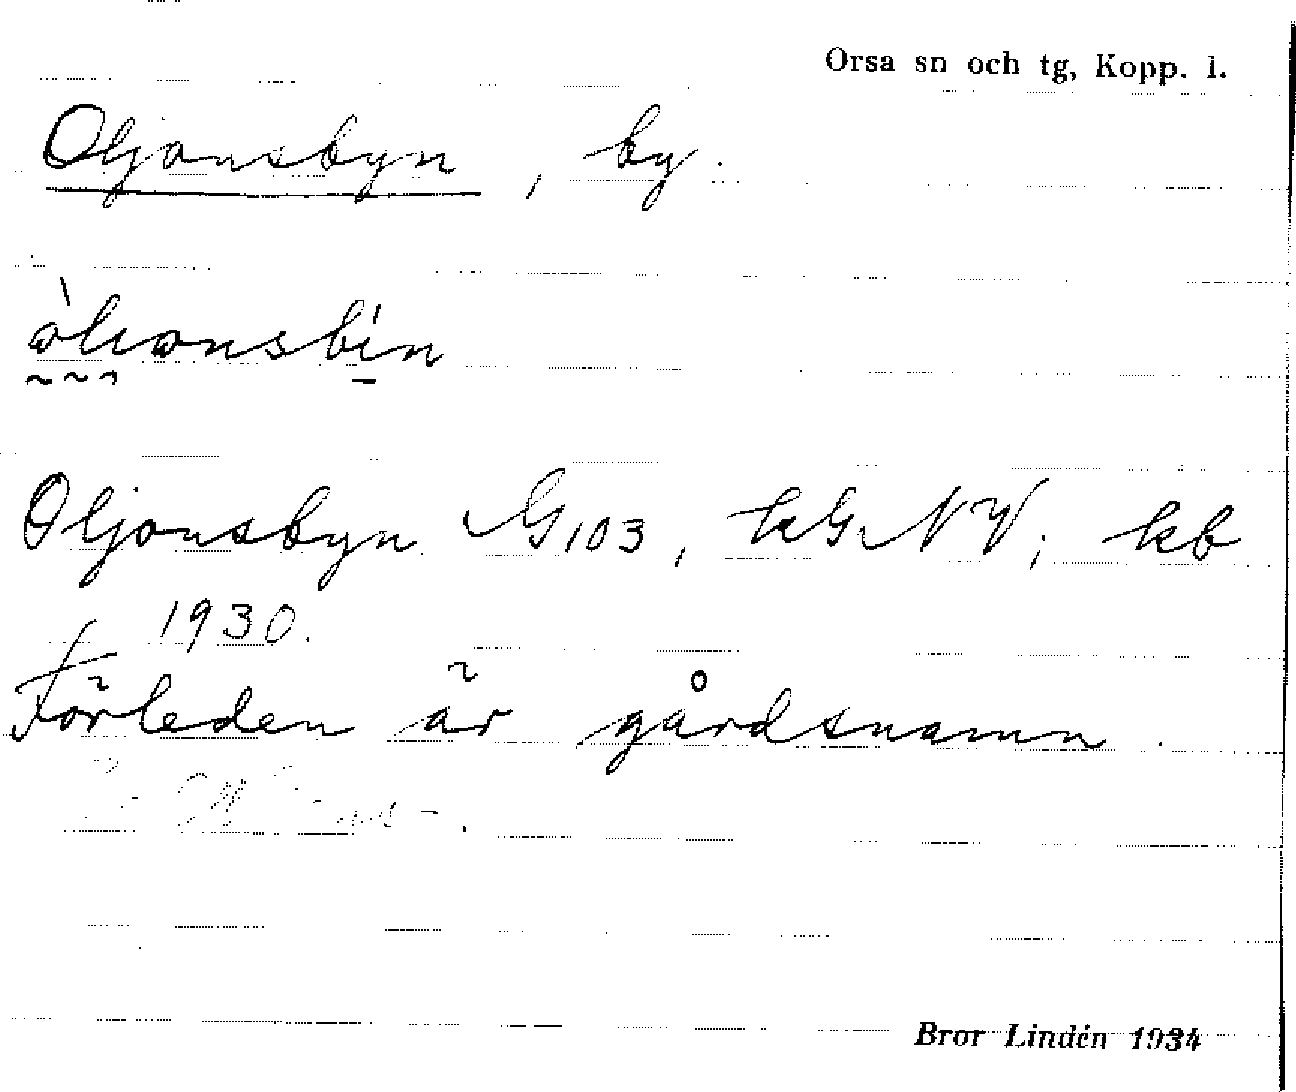 Orsa sn och tg, Kopp. l.
Oljonsbyn, by.
Oljonsbyn G103, kG NV; kb
1930.
Förleden är gårdsnamn.
Bror Lindén 1934